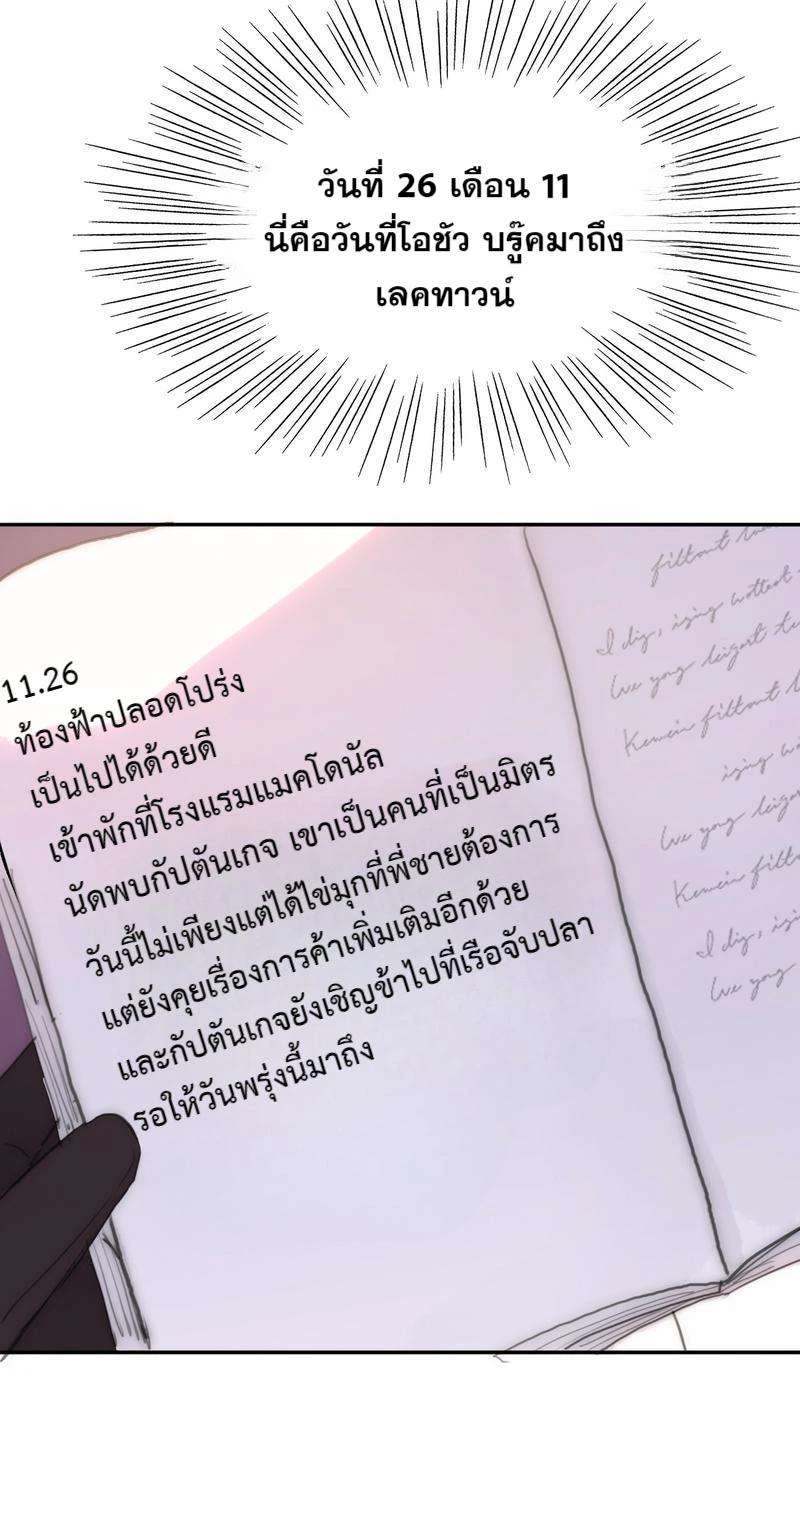 วันที่ 26 เดือน 11
นี่คือวันที่โอชัว บรู๊คมาถึง
เลคทาวน์
11.26
ท้องฟ้าปลอดโปร่ง
เป็นไปได้ด้วยดี
เข้าพักที่โรงแรมแมคโดนัล
นัดพบกัปตันเกจ เขาเป็นคนที่เป็นมิตร
วันนี้ไม่เพียงแต่ได้ไข่มุกที่พี่ชายต้องการ
แต่ยังคุยเรื่องการค้าเพิ่มเติมอีกด้วย
และกัปตันเกจยังเชิญข้าไปที่เรือจับปลา
รอให้วันพรุ่งนี้มาถึง